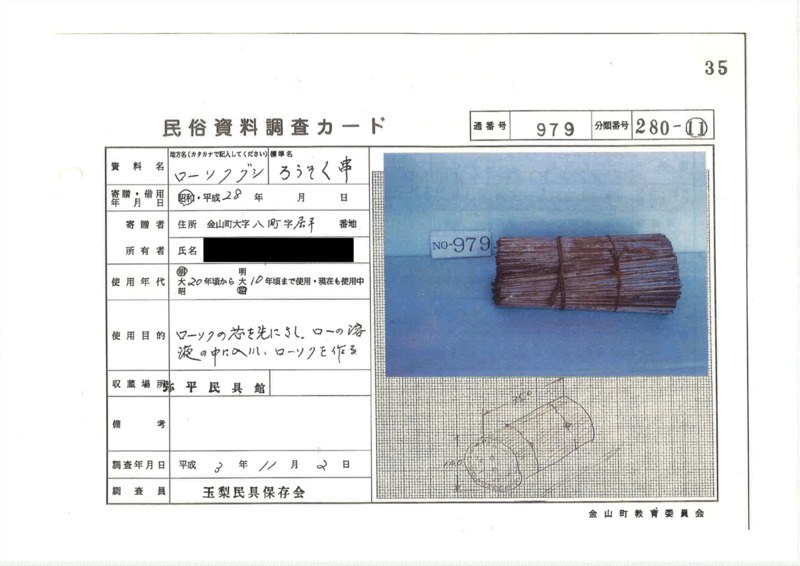 35
民俗資料調査カード
通番号 979 分類番号 280-11
資料名 地方名(カタカナで記入してください) ローソクグシ 標準名 ろうそく串
寄贈・借用年月日 昭和・平成 28 年 月 日
寄贈者 住所 金山町大字 八町 字 居平 番地
所有者 氏名
使用年代 明大昭 20 年頃から 明大昭 10 年頃まで使用・現在も使用中
使用目的 ローソクの芯を先にさし、ローの溶
液の中に入れ、ローソクを作る
収蔵場所 弥平民具館
備考
調査年月日 平成 3 年 11 月 2 日
調査員 玉梨民具保存会
NO-979
350
金山町教育委員会